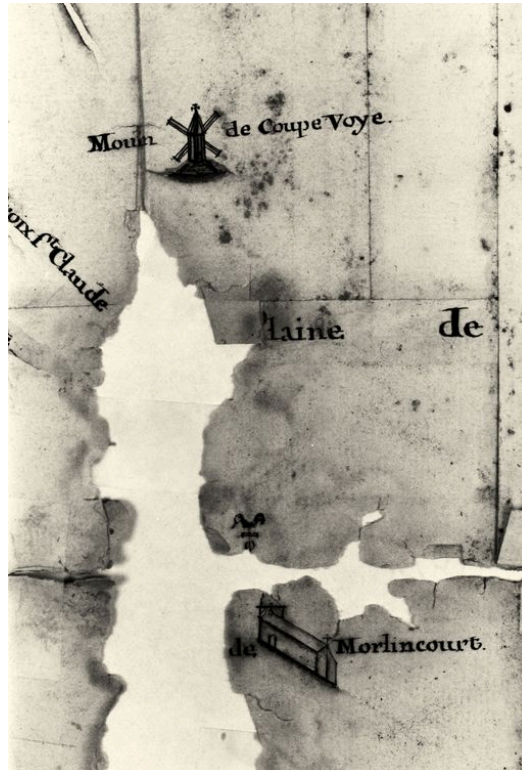 Moulin de Coupe Voye.
oix St. Claude
laine de
de Morlincourt.